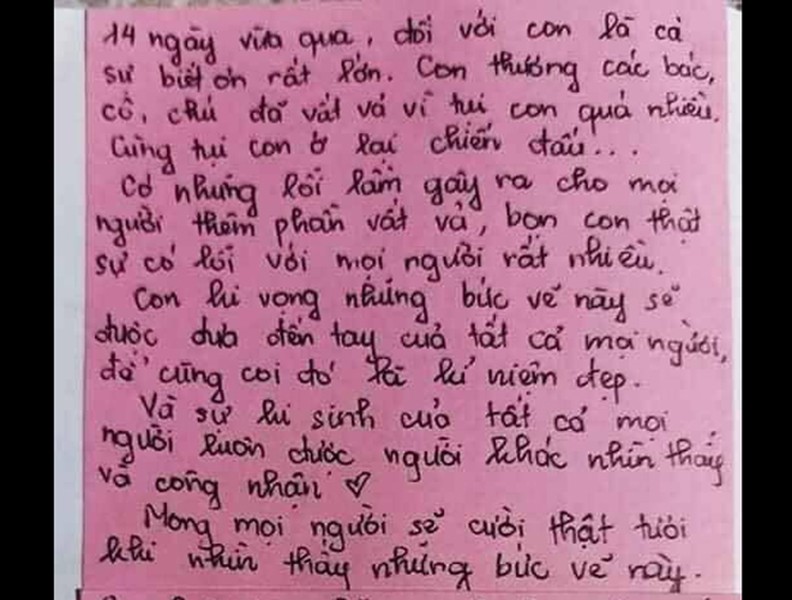 14 ngày vừa qua, đối với con là cả
sự biết ơn rất lớn. Con thương các bác,
cô, chú đã vất vả vì tụi con quá nhiều.
Cùng tụi con ở lại chiến đấu...
Có những lỗi lầm gây ra cho mọi
người thêm phần vất vả, bọn con thật
sự có lỗi với mọi người rất nhiều.
Con hi vọng những bức vẽ này sẽ
được đưa đến tay của tất cả mọi người,
để cũng coi đó là kỉ niệm đẹp.
Và sự hi sinh của tất cả mọi
người luôn được người khác nhìn thấy
và công nhận ♡
Mong mọi người sẽ cười thật tươi
khi nhìn thấy những bức vẽ này.